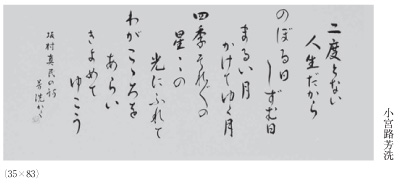 二度とない
人生だから
のぼる日 しずむ日
まるい月
かけてゆく月
四季それぞれの
星々の
光にふれて
わがこころを
あらい
きよめて
ゆこう
坂村真民の詩
芳洗かく
小宮路芳洗
(35×83)